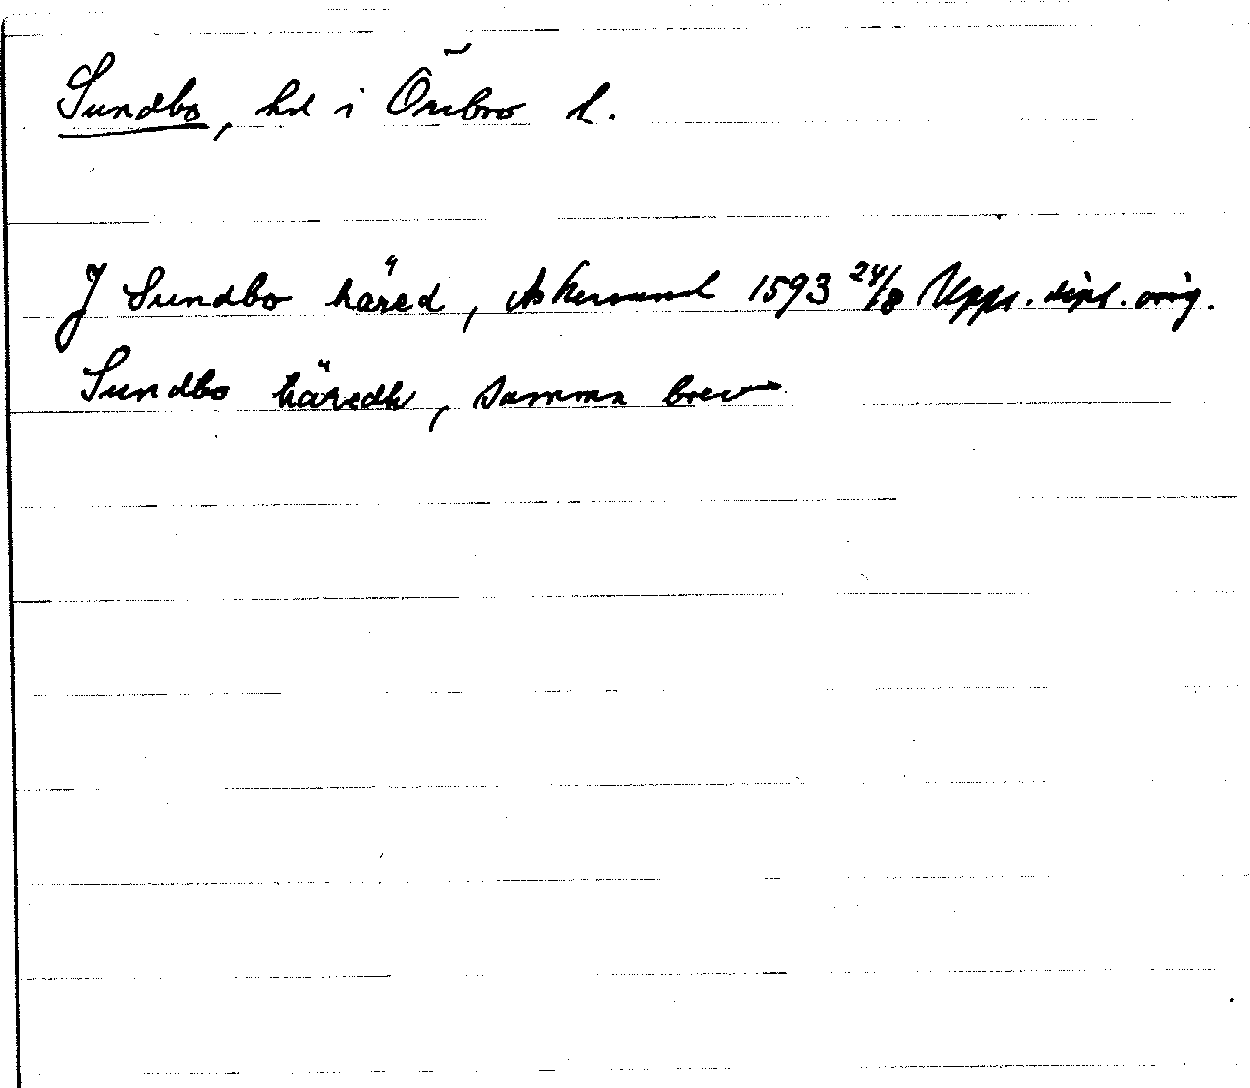 Sundbo, hd i Örebro l.
J Sundbo häred, Askersund 1593 24/8 Upps. dipl. orig.
Sundbo häredh, samma brev